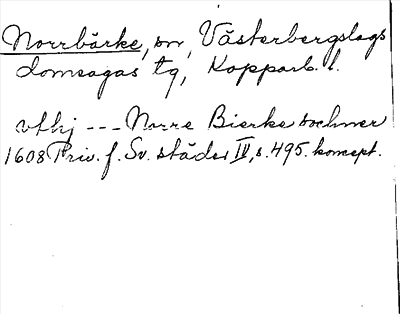 Norrbärke, sn, Västerbergslags
domsagas tg, Kopparb. l.
vthj --- Norre Bierke sochner
1608 Priv. f. Sv. städer IV, s. 495. koncept.